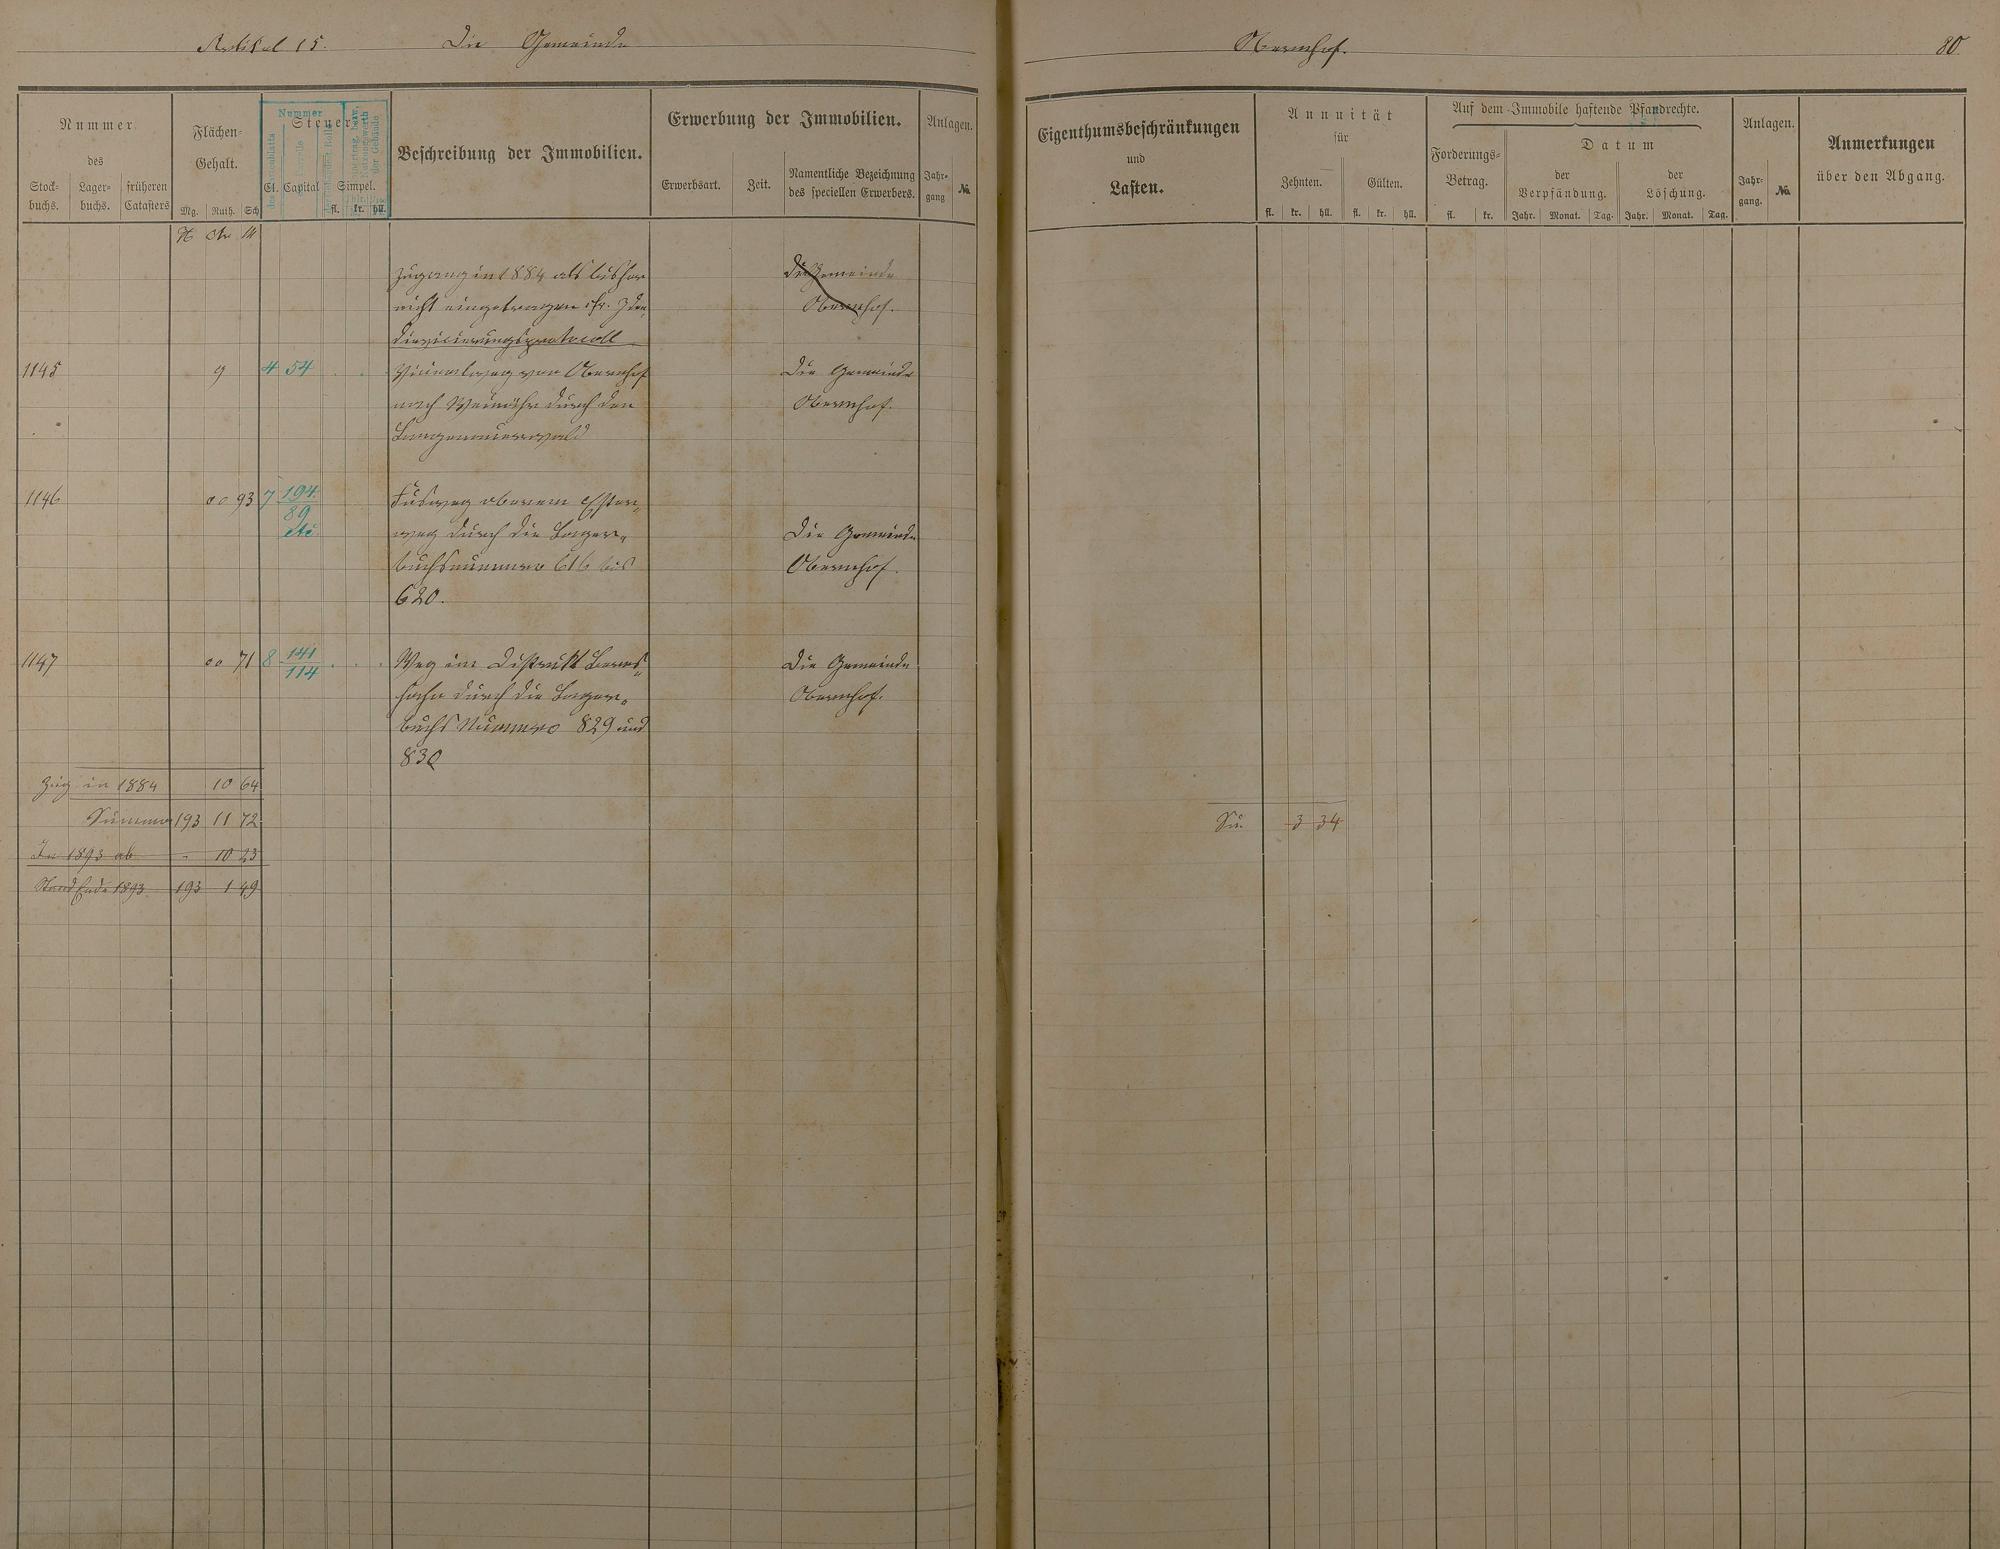 Artikel 15. Die Gemeinde
Obernhof. 80
Nummer
des
Stock-
buchs.
Lager-
buchs.
früheren
Catasters
Flächen-
Gehalt.
Mg. Ruth. Sch
Nummer
Steuer
Cl. Capital Simpel.
fl. kr. hll.
Beschreibung der Immobilien.
Erwerbung der Immobilien.
Erwerbsart. Zeit.
Namentliche Bezeichnung
des speciellen Erwerbers.
Anlagen.
Jahr-
gang
No.
Eigenthumsbeschränkungen
und
Lasten.
Annuität
für
Zehnten. Gülten.
fl. kr. hll. fl. kr. hll.
Auf dem Immobile haftende Pfandrechte.
Forderungs-
Betrag.
fl. kr.
Datum
der
Verpfändung.
der
Löschung.
Jahr. Monat. Tag. Jahr. Monat. Tag.
Anlagen.
Jahr-
gang.
No.
Anmerkungen
über den Abgang.
Zugang in 1884 als bisher
nicht eingetragen cfr.
Die Gemeinde
Obernhof.
1145 9 4 54
Vicinalweg von Obernhof
nach Weinähr durch den
Langenauerwald
Die Gemeinde
Obernhof.
1146 00 93 7 194
89
etc.
Fusweg oberem
weg durch die Lager-
buchsnummer 616 bis
620.
Die Gemeinde
Obernhof.
1147 00 71 8 141
114
Weg im Distrikt
hahn durch die Lager-
buchs Nummero 829 und
830
Die Gemeinde
Obernhof.
Zug. in 1884 10 64
Summa 193 11 72
In 1893 ab - 10 23
Stand Ende 1893 193 1 49
Su. 3 34